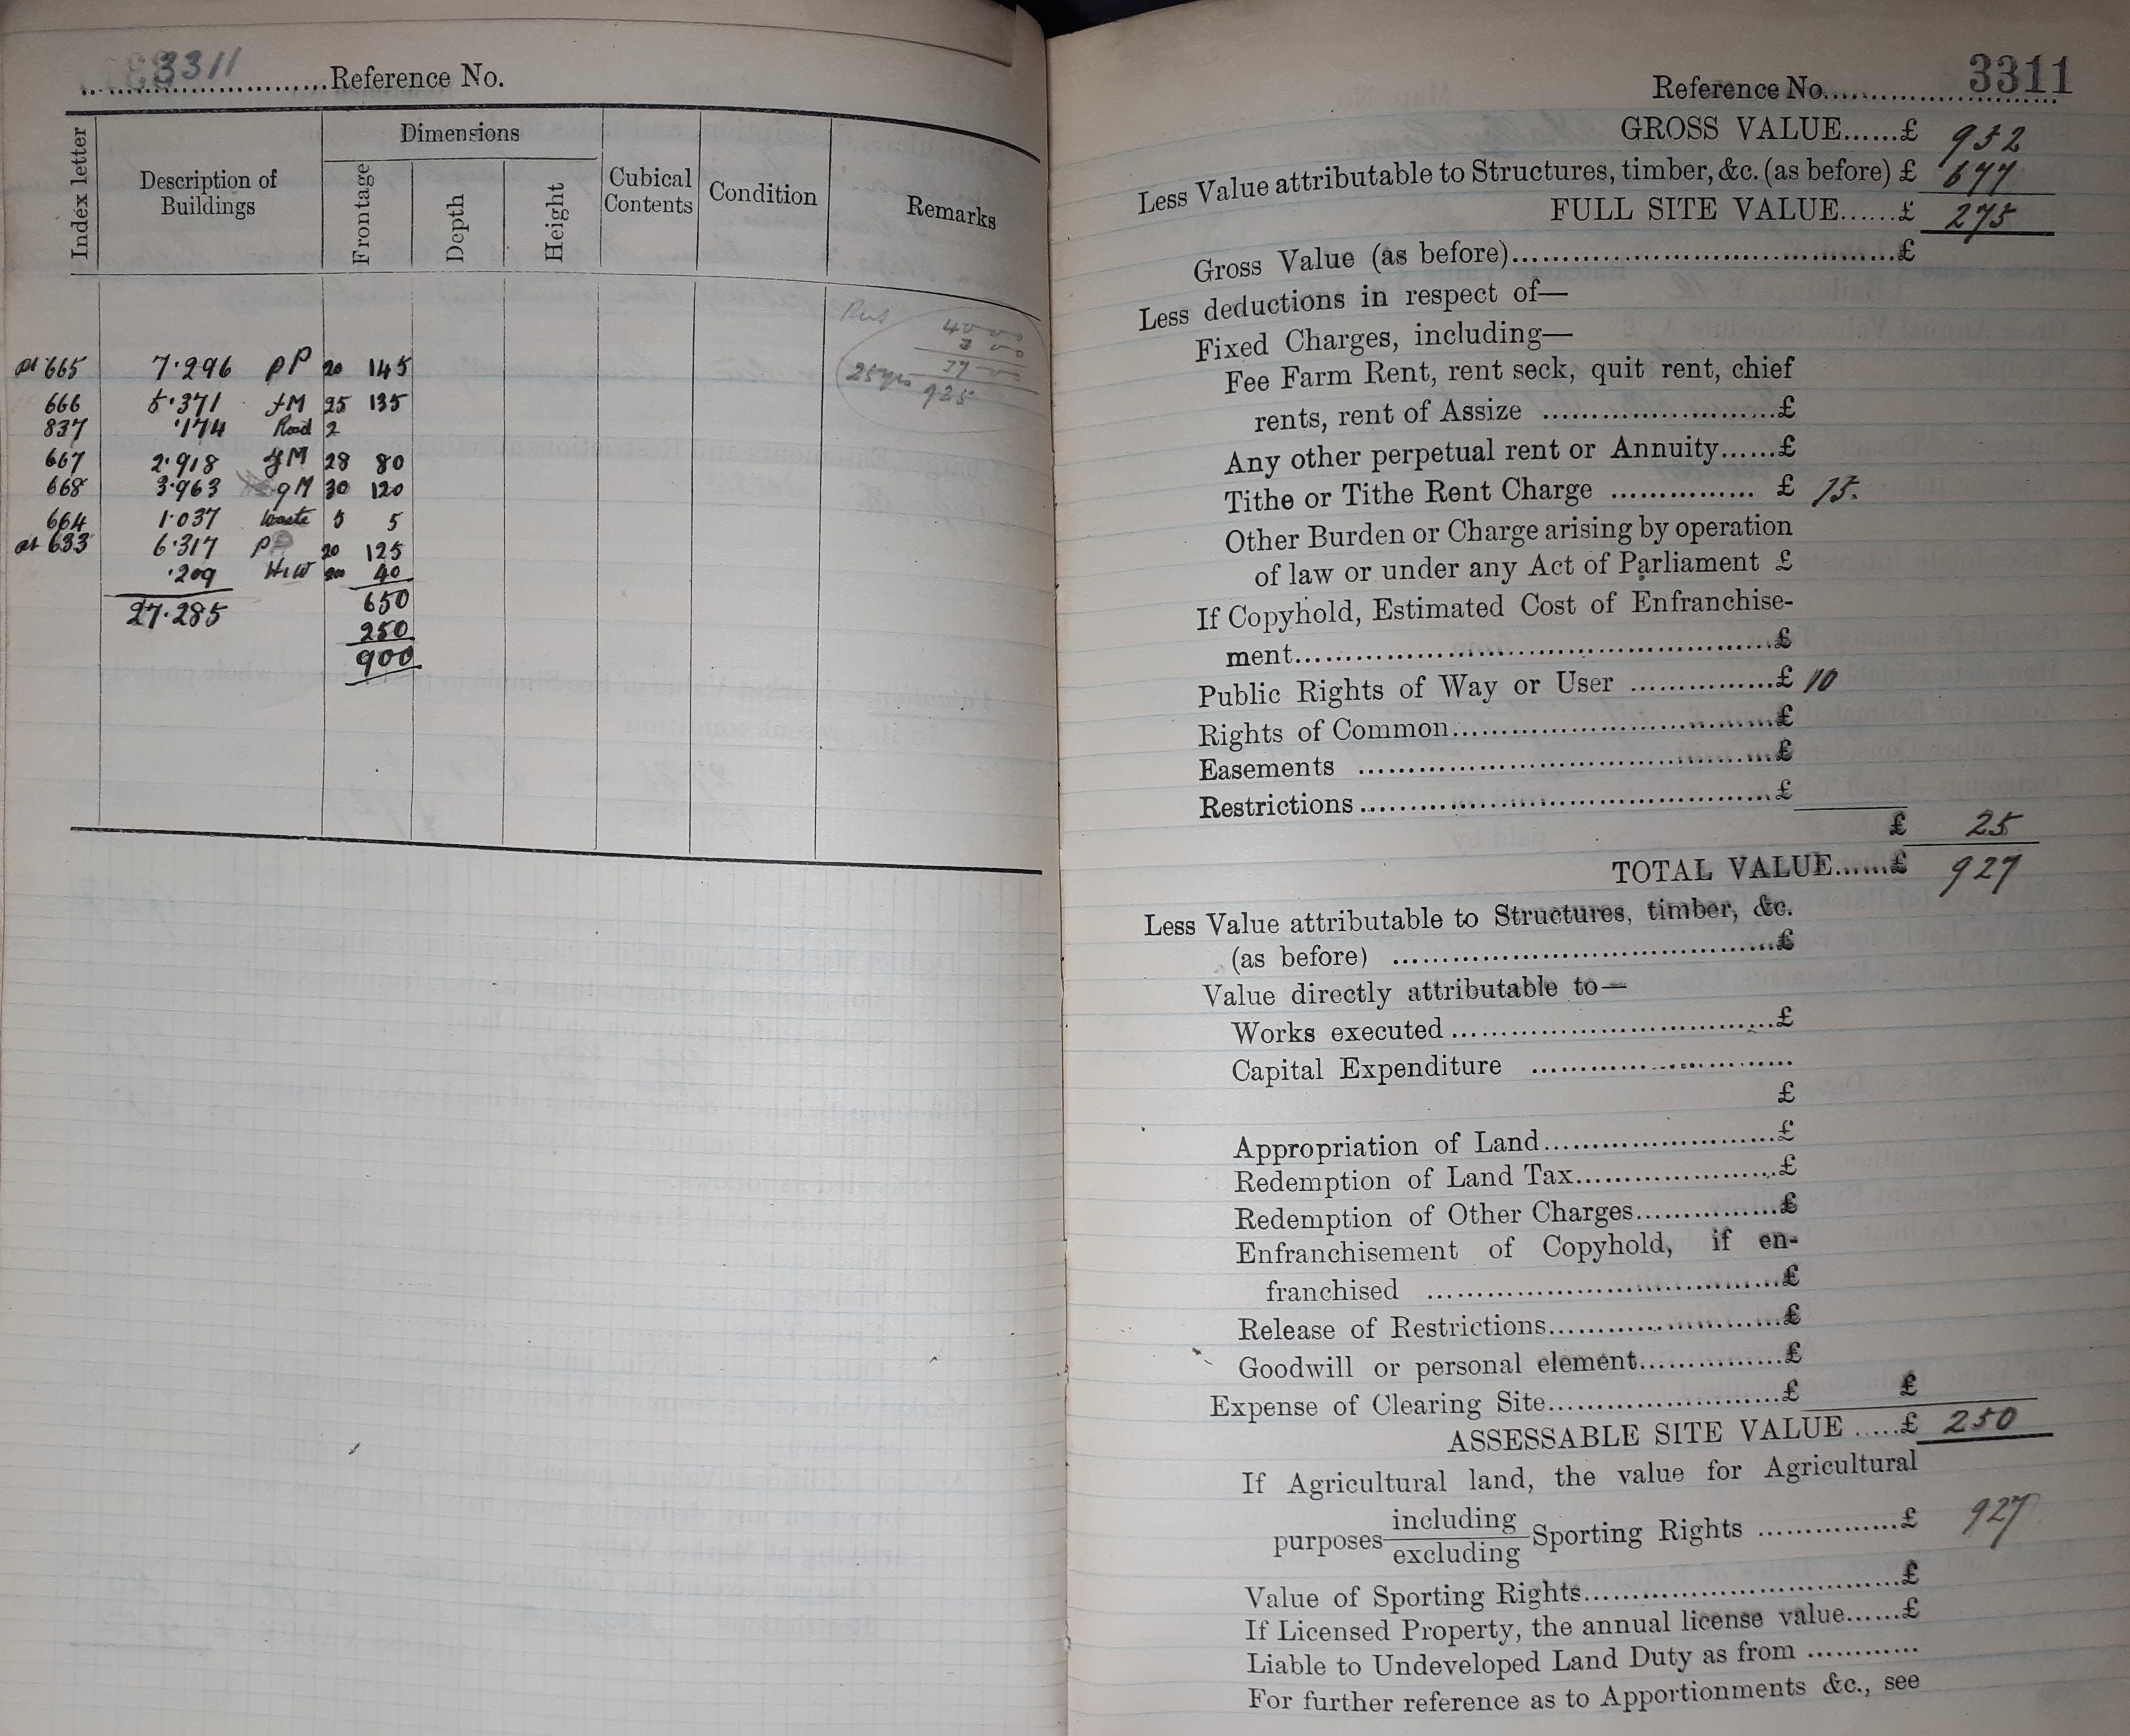 3311 Reference No.
Index letter
Description of Buildings
Dimensions
Frontage
Depth
Height
Cubical Contents
Condition
Remarks
Rent 40 00
3 00
37 00
25 yrs 925
pt 665 7.296 pP 20 145
666 5.371 fM 25 135
837 .174 Road 2
667 2.918 gM 28 80
668 3.963 gM 30 120
664 1.037 Waste 5 5
pt 633 6.317 pP 20 125
.209 H&W 200 40
27.285 650
250
900
Reference No. 3311
GROSS VALUE......£ 952
Less Value attributable to Structures, timber, &c. (as before) £ 677
FULL SITE VALUE......£ 275
Gross Value (as before)..........£
Less deductions in respect of—
Fixed Charges, including—
Fee Farm Rent, rent seck, quit rent, chief
rents, rent of Assize ..........£
Any other perpetual rent or Annuity......£
Tithe or Tithe Rent Charge .......... £ 15.
Other Burden or Charge arising by operation
of law or under any Act of Parliament £
If Copyhold, Estimated Cost of Enfranchise-
ment..........£
Public Rights of Way or User ..........£ 10
Rights of Common..........£
Easements ..........£
Restrictions..........£
£ 25
TOTAL VALUE......£ 927
Less Value attributable to Structures, timber, &c.
(as before) ..........£
Value directly attributable to—
Works executed ..........£
Capital Expenditure ..........
£
Appropriation of Land..........£
Redemption of Land Tax..........£
Redemption of Other Charges..........£
Enfranchisement of Copyhold, if en-
franchised ..........£
Release of Restrictions..........£
Goodwill or personal element..........£
Expense of Clearing Site..........£ £
ASSESSABLE SITE VALUE .....£ 250
If Agricultural land, the value for Agricultural
purposes including excluding Sporting Rights ..........£ 927
Value of Sporting Rights..........£
If Licensed Property, the annual license value......£
Liable to Undeveloped Land Duty as from ............
For further reference as to Apportionments &c., see